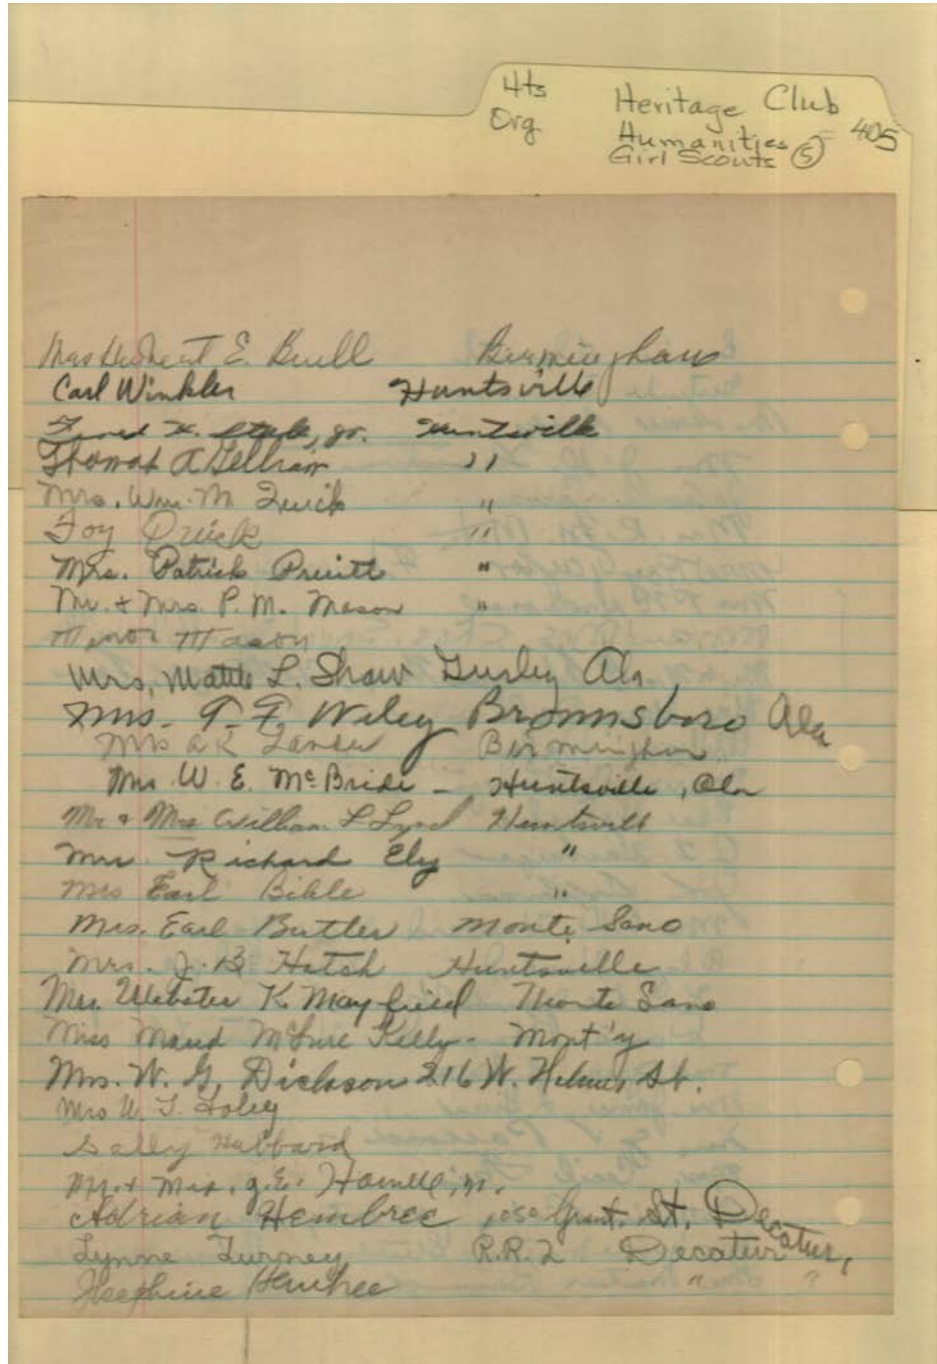 Hts Heritage Club
Org. Humanities - 405
Girl Scouts (5)
Mrs Hubert E. Buell Birmingham
Carl Winkler Huntsville
Jr. Huntsville
Thomas A "
Mrs. Wm. M. Quick "
Foy Quick "
Mrs. Patrick Pruitt "
Mr. + Mrs. P. M. Mason "
Minor Mason
Mrs. Mattie L. Shaw Gurley Ala
Mrs. T. F. Wiley Brownsboro Ala
Mrs Birmingham
Mrs W. E. McBride - Huntsville, Ala
Mr & Mrs William L Huntsville
Mrs. Richard Ely "
Mrs Earl Bible "
Mrs. Earl Butler Monte Sano
Mrs. J. B. Hatch Huntsville
Mrs. Webster K. Mayfield Monte Sano
Miss Maud McLure Kelly - Mont'y
Mrs. W. G. Dickson 216 W. St.
Mrs W. T. Foley
Sally Hubbard
Mr. + Mrs. J. E.
Adrian Hembree 1050 Grant. St. Decatur,
Lynne Turney R.R. 2 Decatur
Josephine Hembree " "